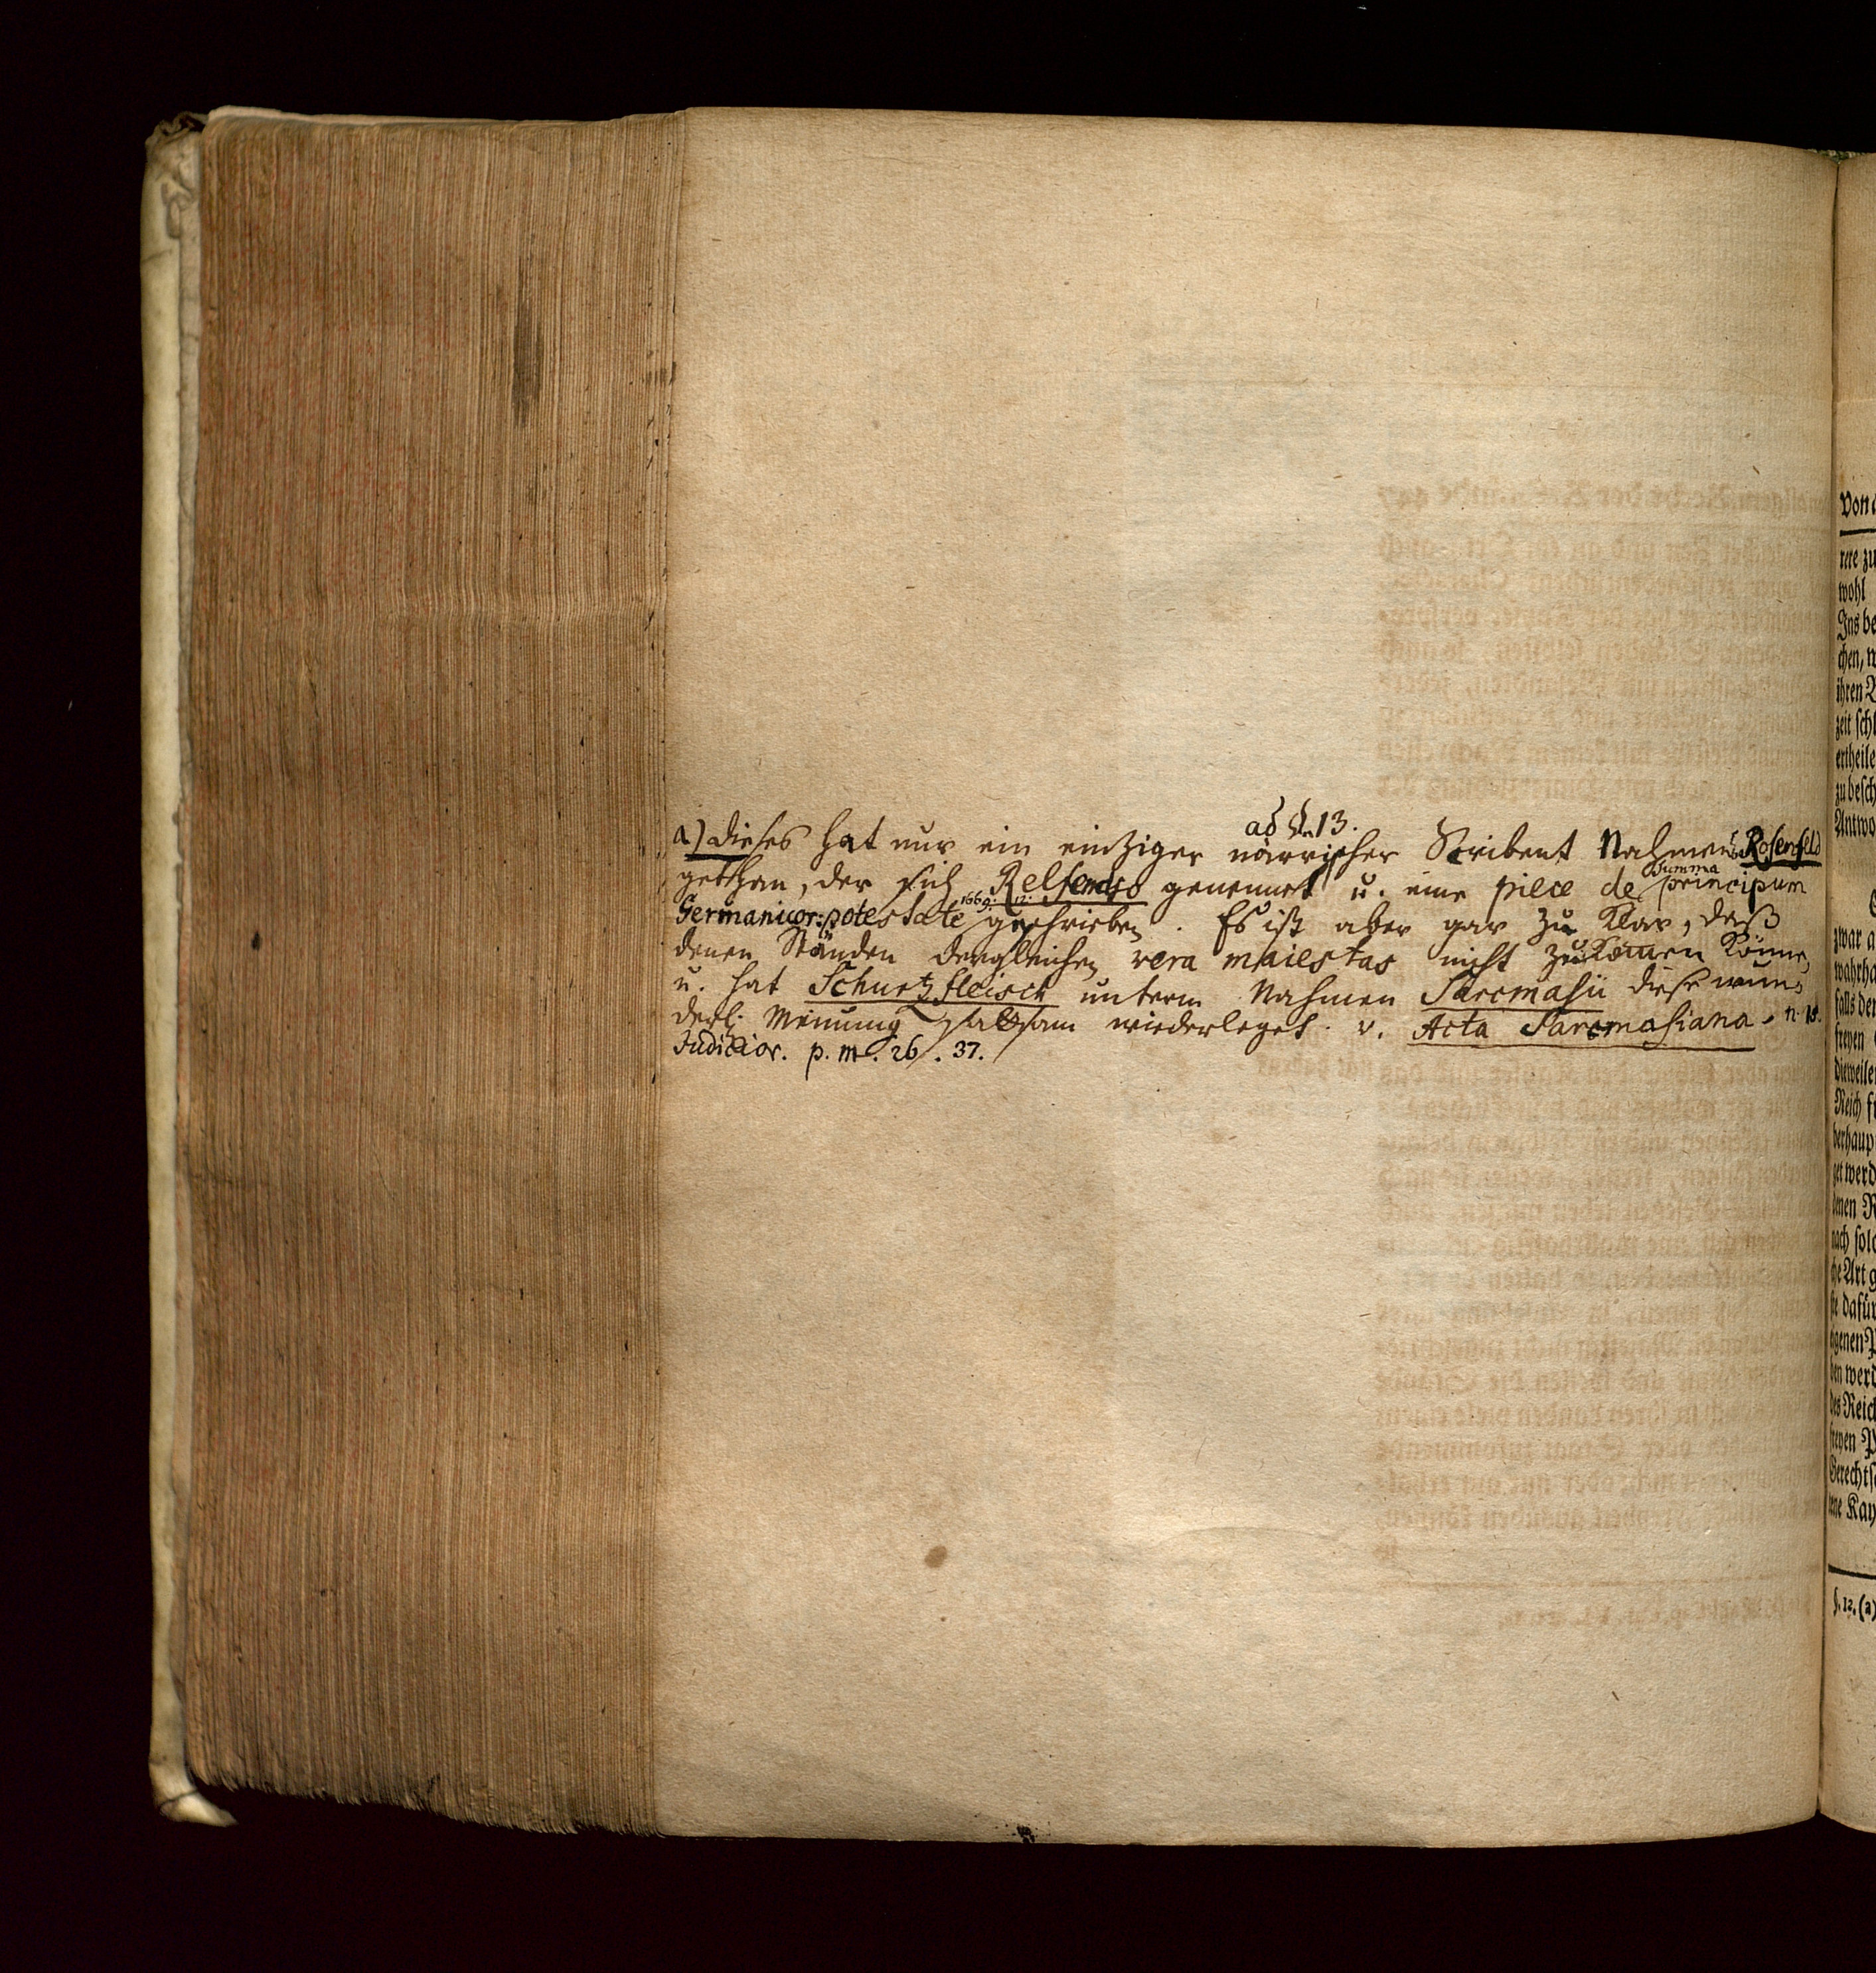 ad §. 13.
a) dieses hat nur ein einziger närrischer Scribent Nahmens Rosenfeld
gethan, der sich Relfendso genennet u. eine piece de summa principum
Germanicor: potestate 1669. 12. geschrieben. Es ist aber gar zu klar, daß
denen Ständen dergleichen vera maiestas nicht zukommen könne,
u. hat Schurtzfleisch unterm Nahmen Sarcmasii diese wun-
derl. Meinung sattsam wiederleget. v. Acta Sarcmasiana, n.
Judicior. p. m. 26. 37.
Von
rere zu
wohl
Ins be
chen, w
ihren
zeit schl
ertheile
zu besch
Antwo
zwar a
wahrha
falls der
freyen
dieweile
Reich
berhaup
get werd
denen R
nach solc
che Art g
sie dafür
eigenen
den werd
des Reich
freyen
Gerechts
ne Kay
§. 12. (a)